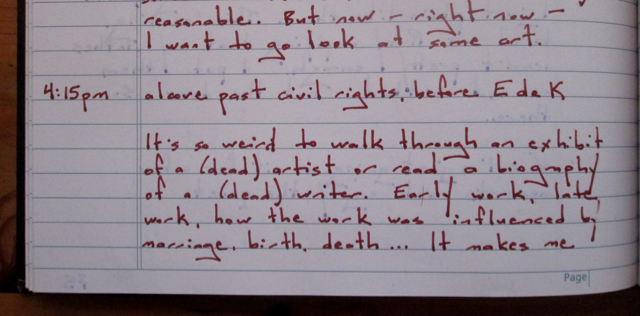 reasonable. But now – right now –
I want to go look at some art.
4:15pm alcove past civil rights, before E de K
It's so weird to walk through an exhibit
of a (dead) artist or read a biography
of a (dead) writer. Early work, late
work, how the work was influenced by
marriage, birth, death... It makes me
Page